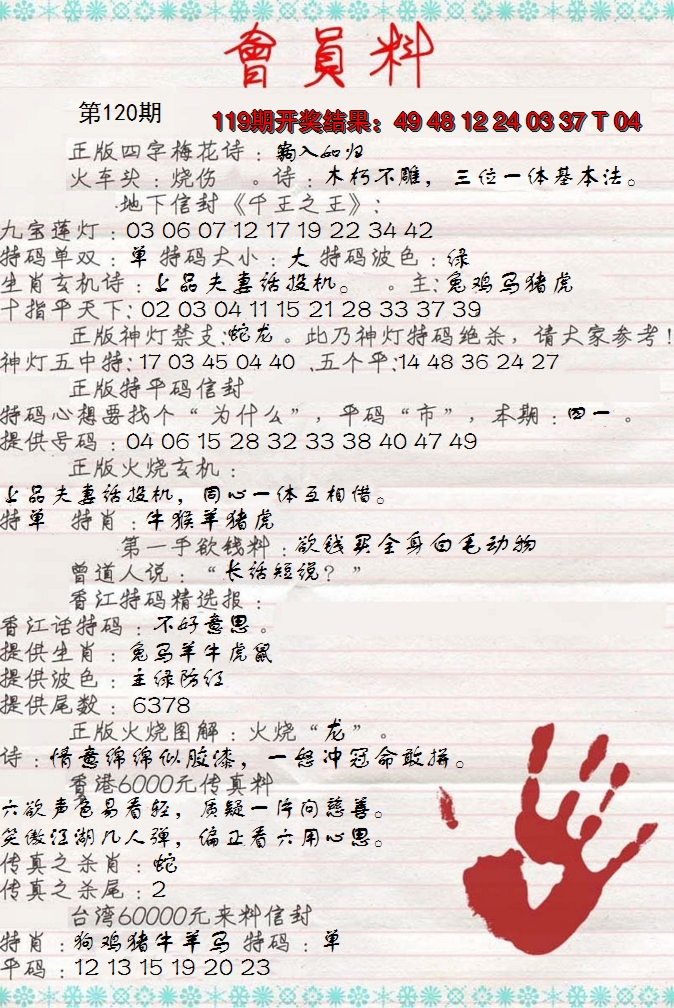 會員料
第120期
119期开奖结果：49 48 12 24 03 37 T 04
正版四字梅花诗：输入如归
火车头：烧伤 。诗：木朽不雕，三位一体基本法。
地下信封《千王之王》：
九宝莲灯：03 06 07 12 17 19 22 34 42
特码单双：单 特码大小：大 特码波色：绿
生肖玄机诗：上品夫妻话投机。 。主:兔鸡马猪虎
十指平天下: 02 03 04 11 15 21 28 33 37 39
正版神灯禁支:蛇龙。此乃神灯特码绝杀，请大家参考!
神灯五中特:17 03 45 04 40 、五个平:14 48 36 24 27
正版特平码信封
特码心想要找个“为什么”，平码“市”，本期：四一 。
提供号码：04 06 15 28 32 33 38 40 47 49
正版火烧玄机：
上品夫妻话投机，同心一体互相借。
特单 特肖：牛猴羊猪虎
第一手欲钱料：欲钱买全身白毛动物
曾道人说：“长话短说？”
香江特码精选报：
香江话特码：不好意思。
提供生肖：兔马羊牛虎鼠
提供波色：主绿防红
提供尾数：6378
正版火烧图解：火烧“龙”。
诗：情意绵绵似胶漆，一怒冲冠命敢拼。
香港6000元传真料
六欲声色易看轻，质疑一片向慈善。
笑傲江湖几人弹，偏正看六用心思。
传真之杀肖：蛇
传真之杀尾：2
台湾60000元来料信封
特肖：狗鸡猪牛羊马 特码：单
平码：12 13 15 19 20 23